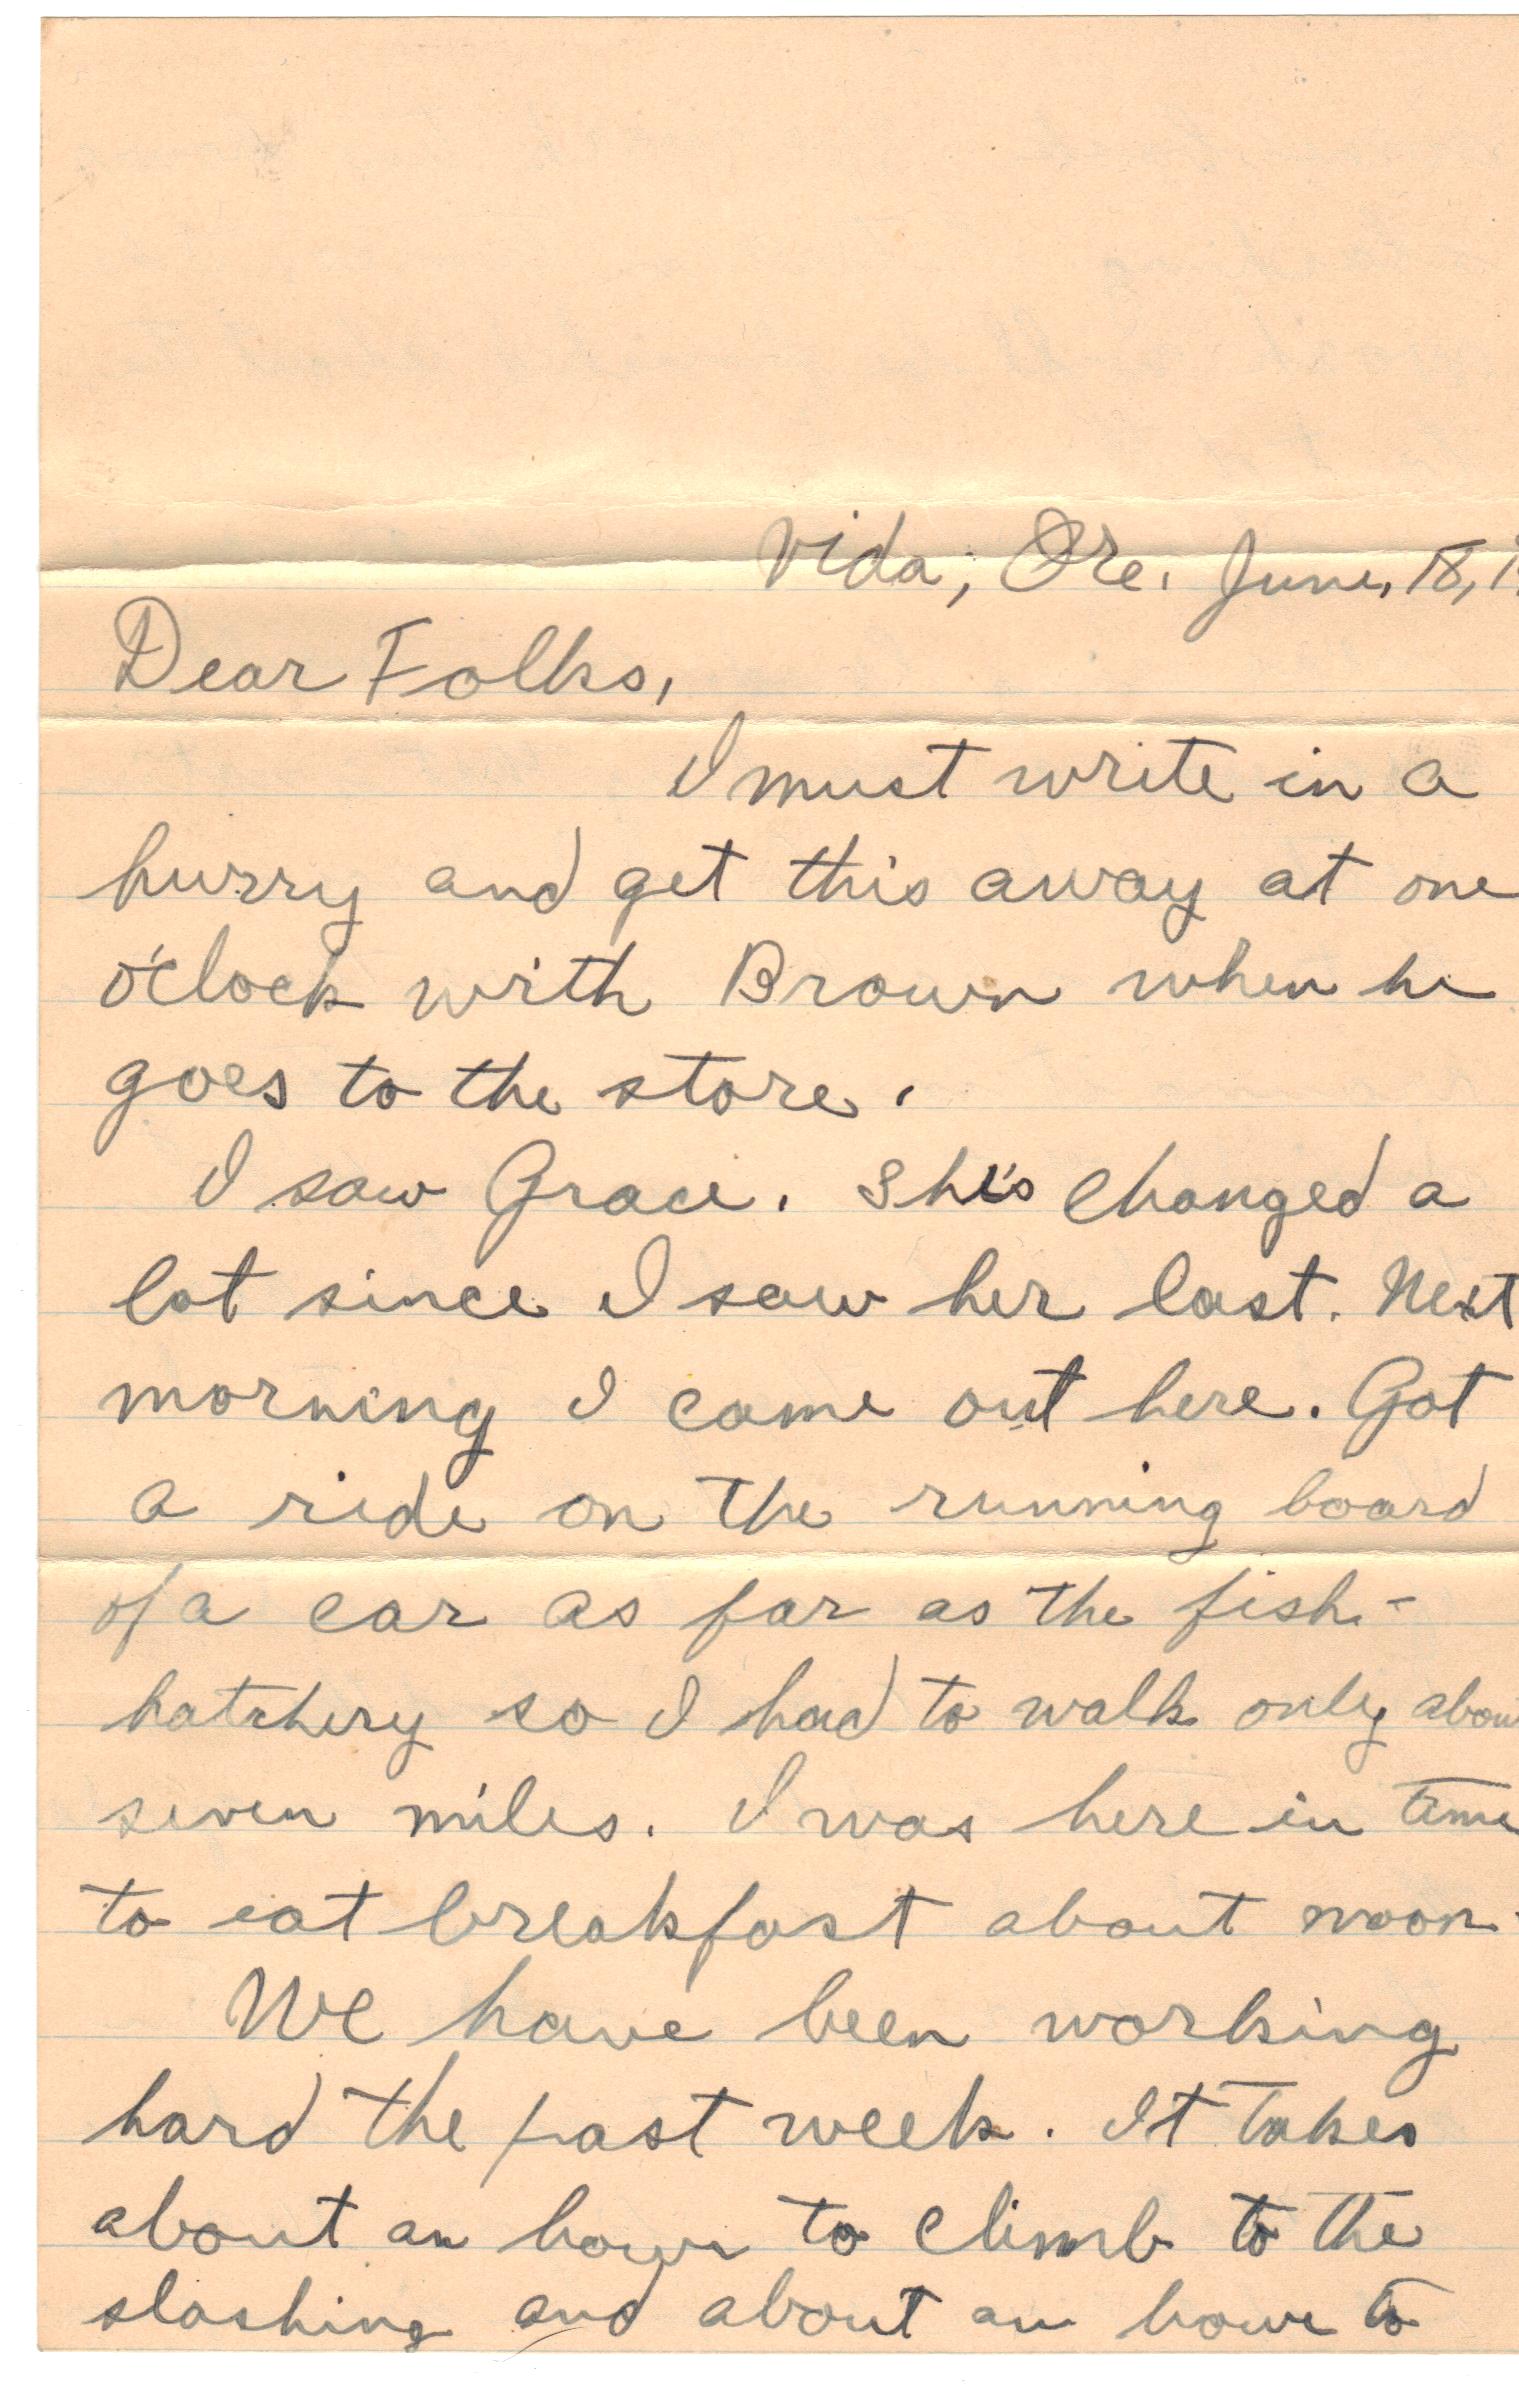 Vida, Ore. June, 18, 1
Dear Folks,
I must write in a
hurry and get this away at one
o'clock with Brown when he
goes to the store.
I saw Grace. She's changed a
lot since I saw her last. Next
morning I came out here. Got
a ride on the running board
of a car as far as the fish-
hatchery so I had to walk only abou
seven miles. I was here in time
to eat breakfast about noon.
We have been working
hard the past week. It takes
about an hour to climb to the
slashing and about an hour to